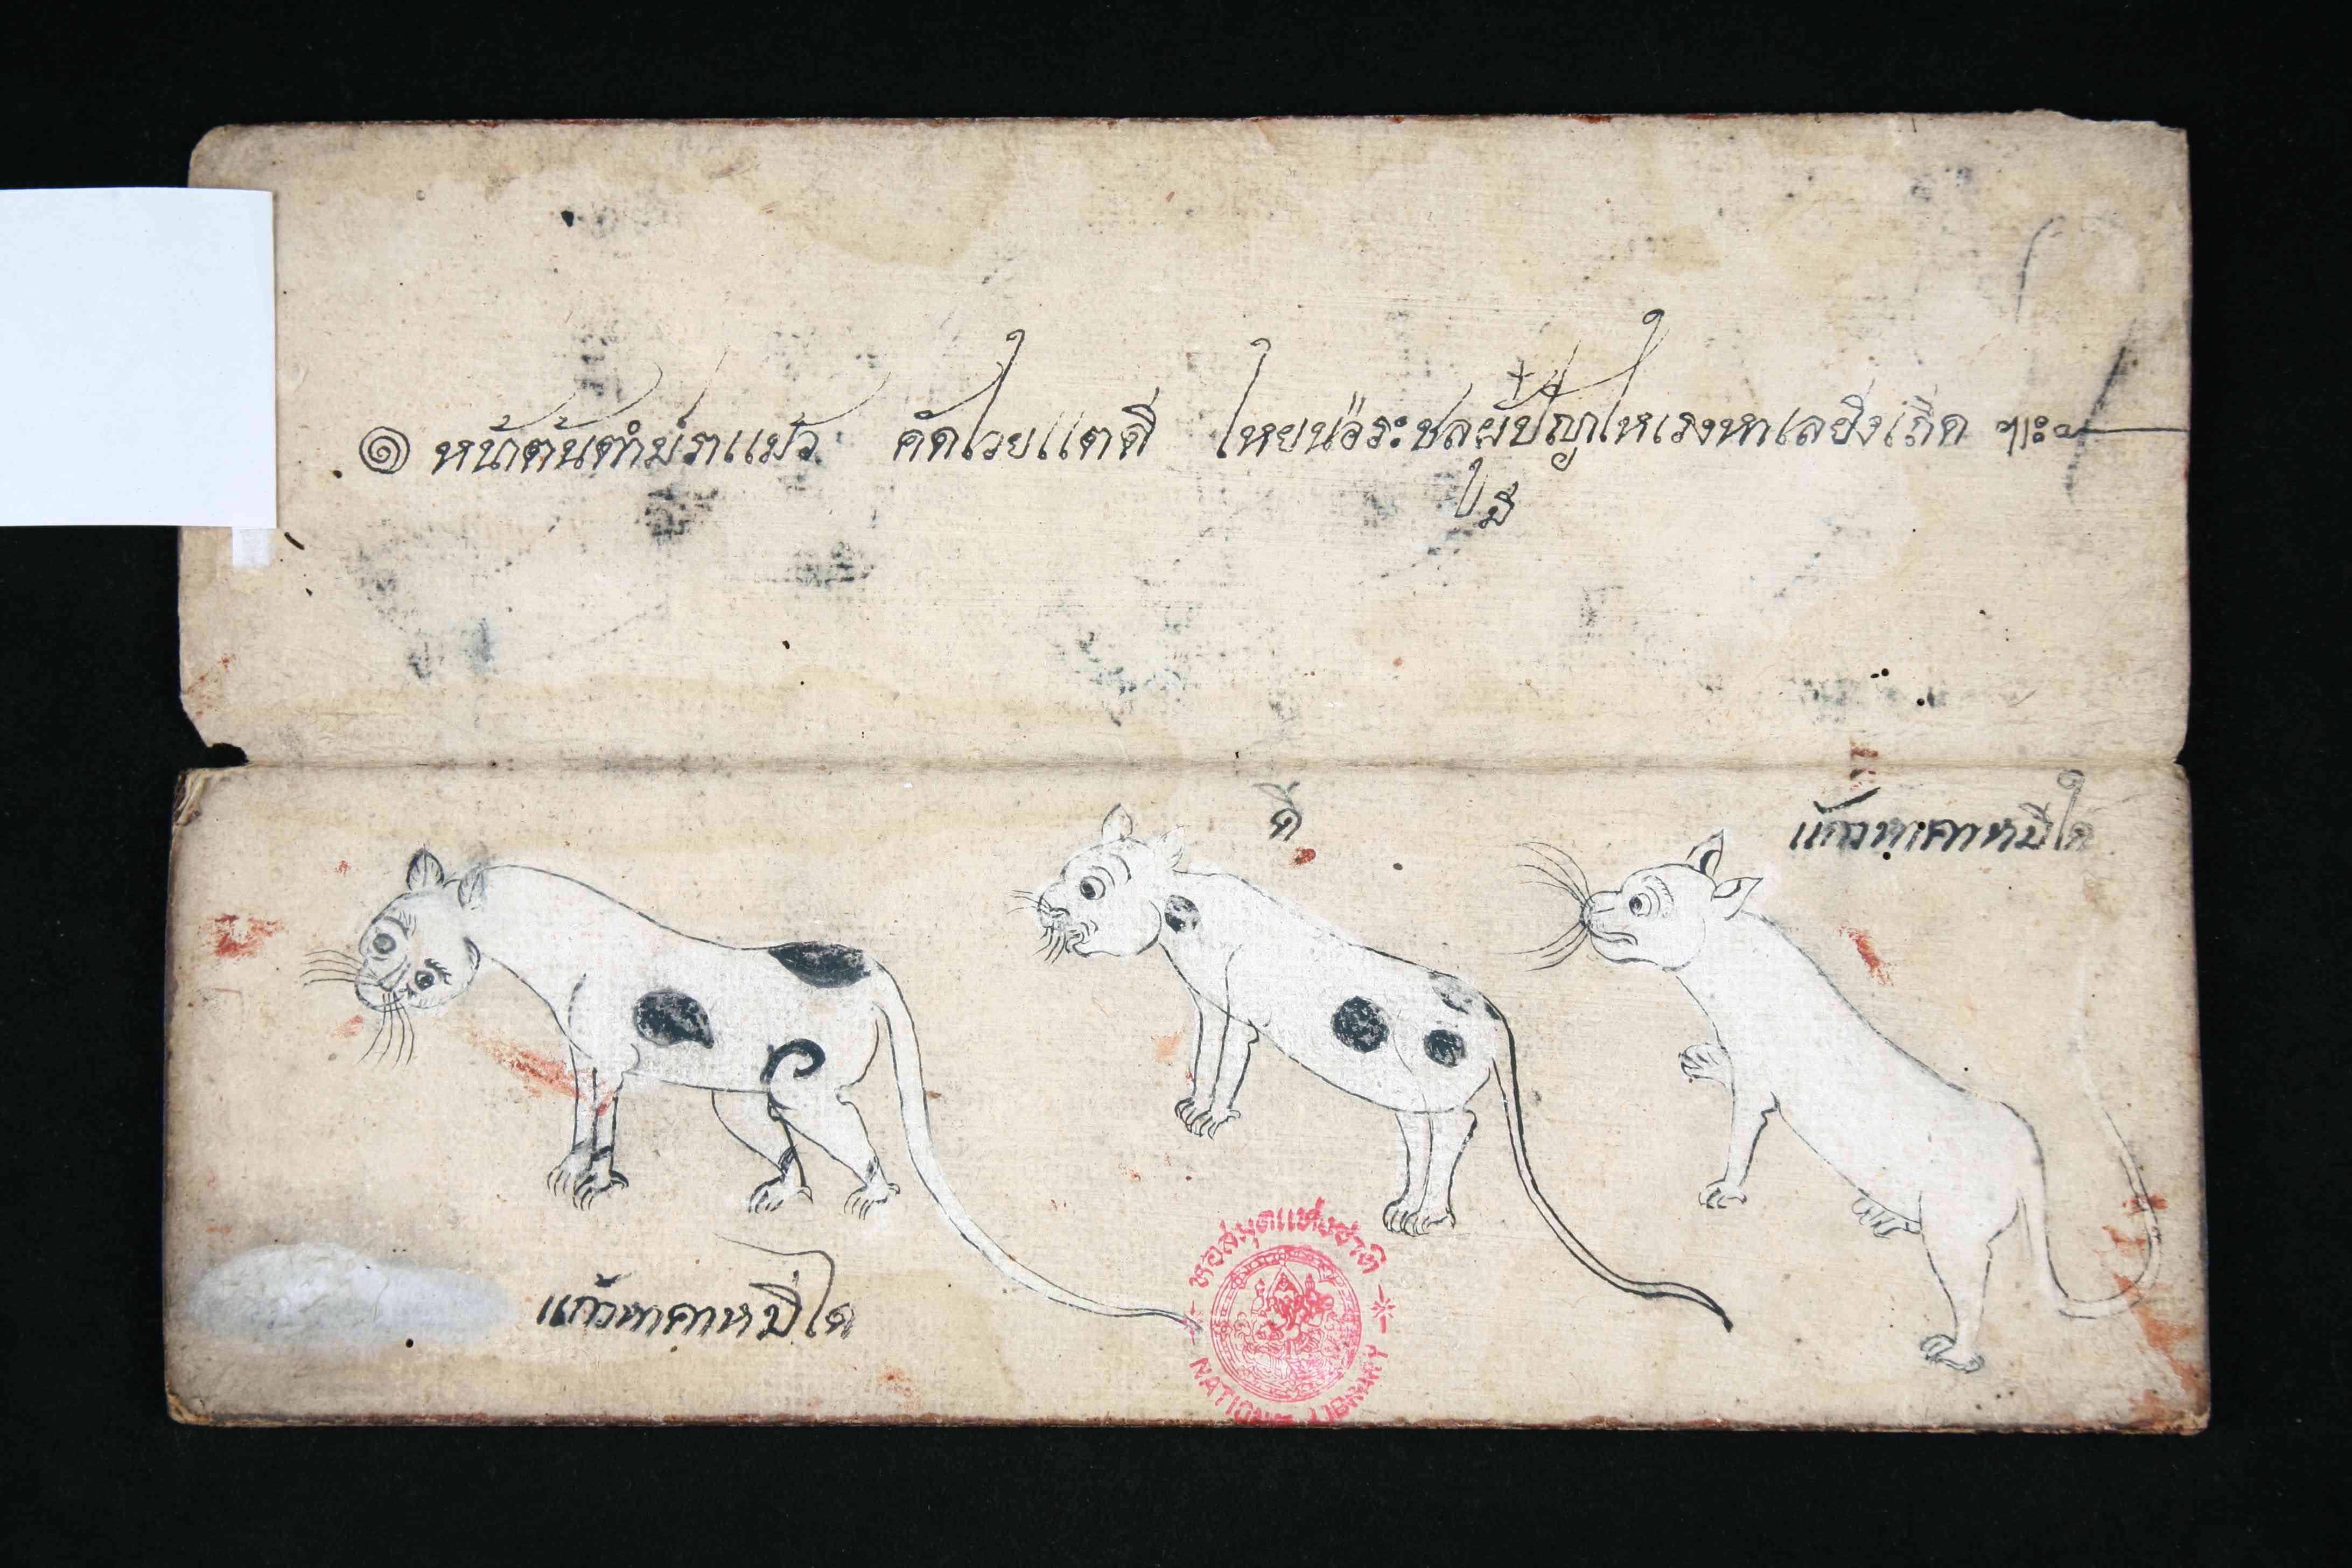 ๑ หน้าต้นตำม่ราแม้ว คัดไวยแตดี่ ไหยน่อระชลผู้ปัญญไหเรงหาเลยิ่งเถีด ฯะ
ใมี
ดี่
แก้วหาคาหมีใด
แก้วหาคาหมี่ใด
หอสมุดแห่งชาติ
NATIONAL LIBRARY